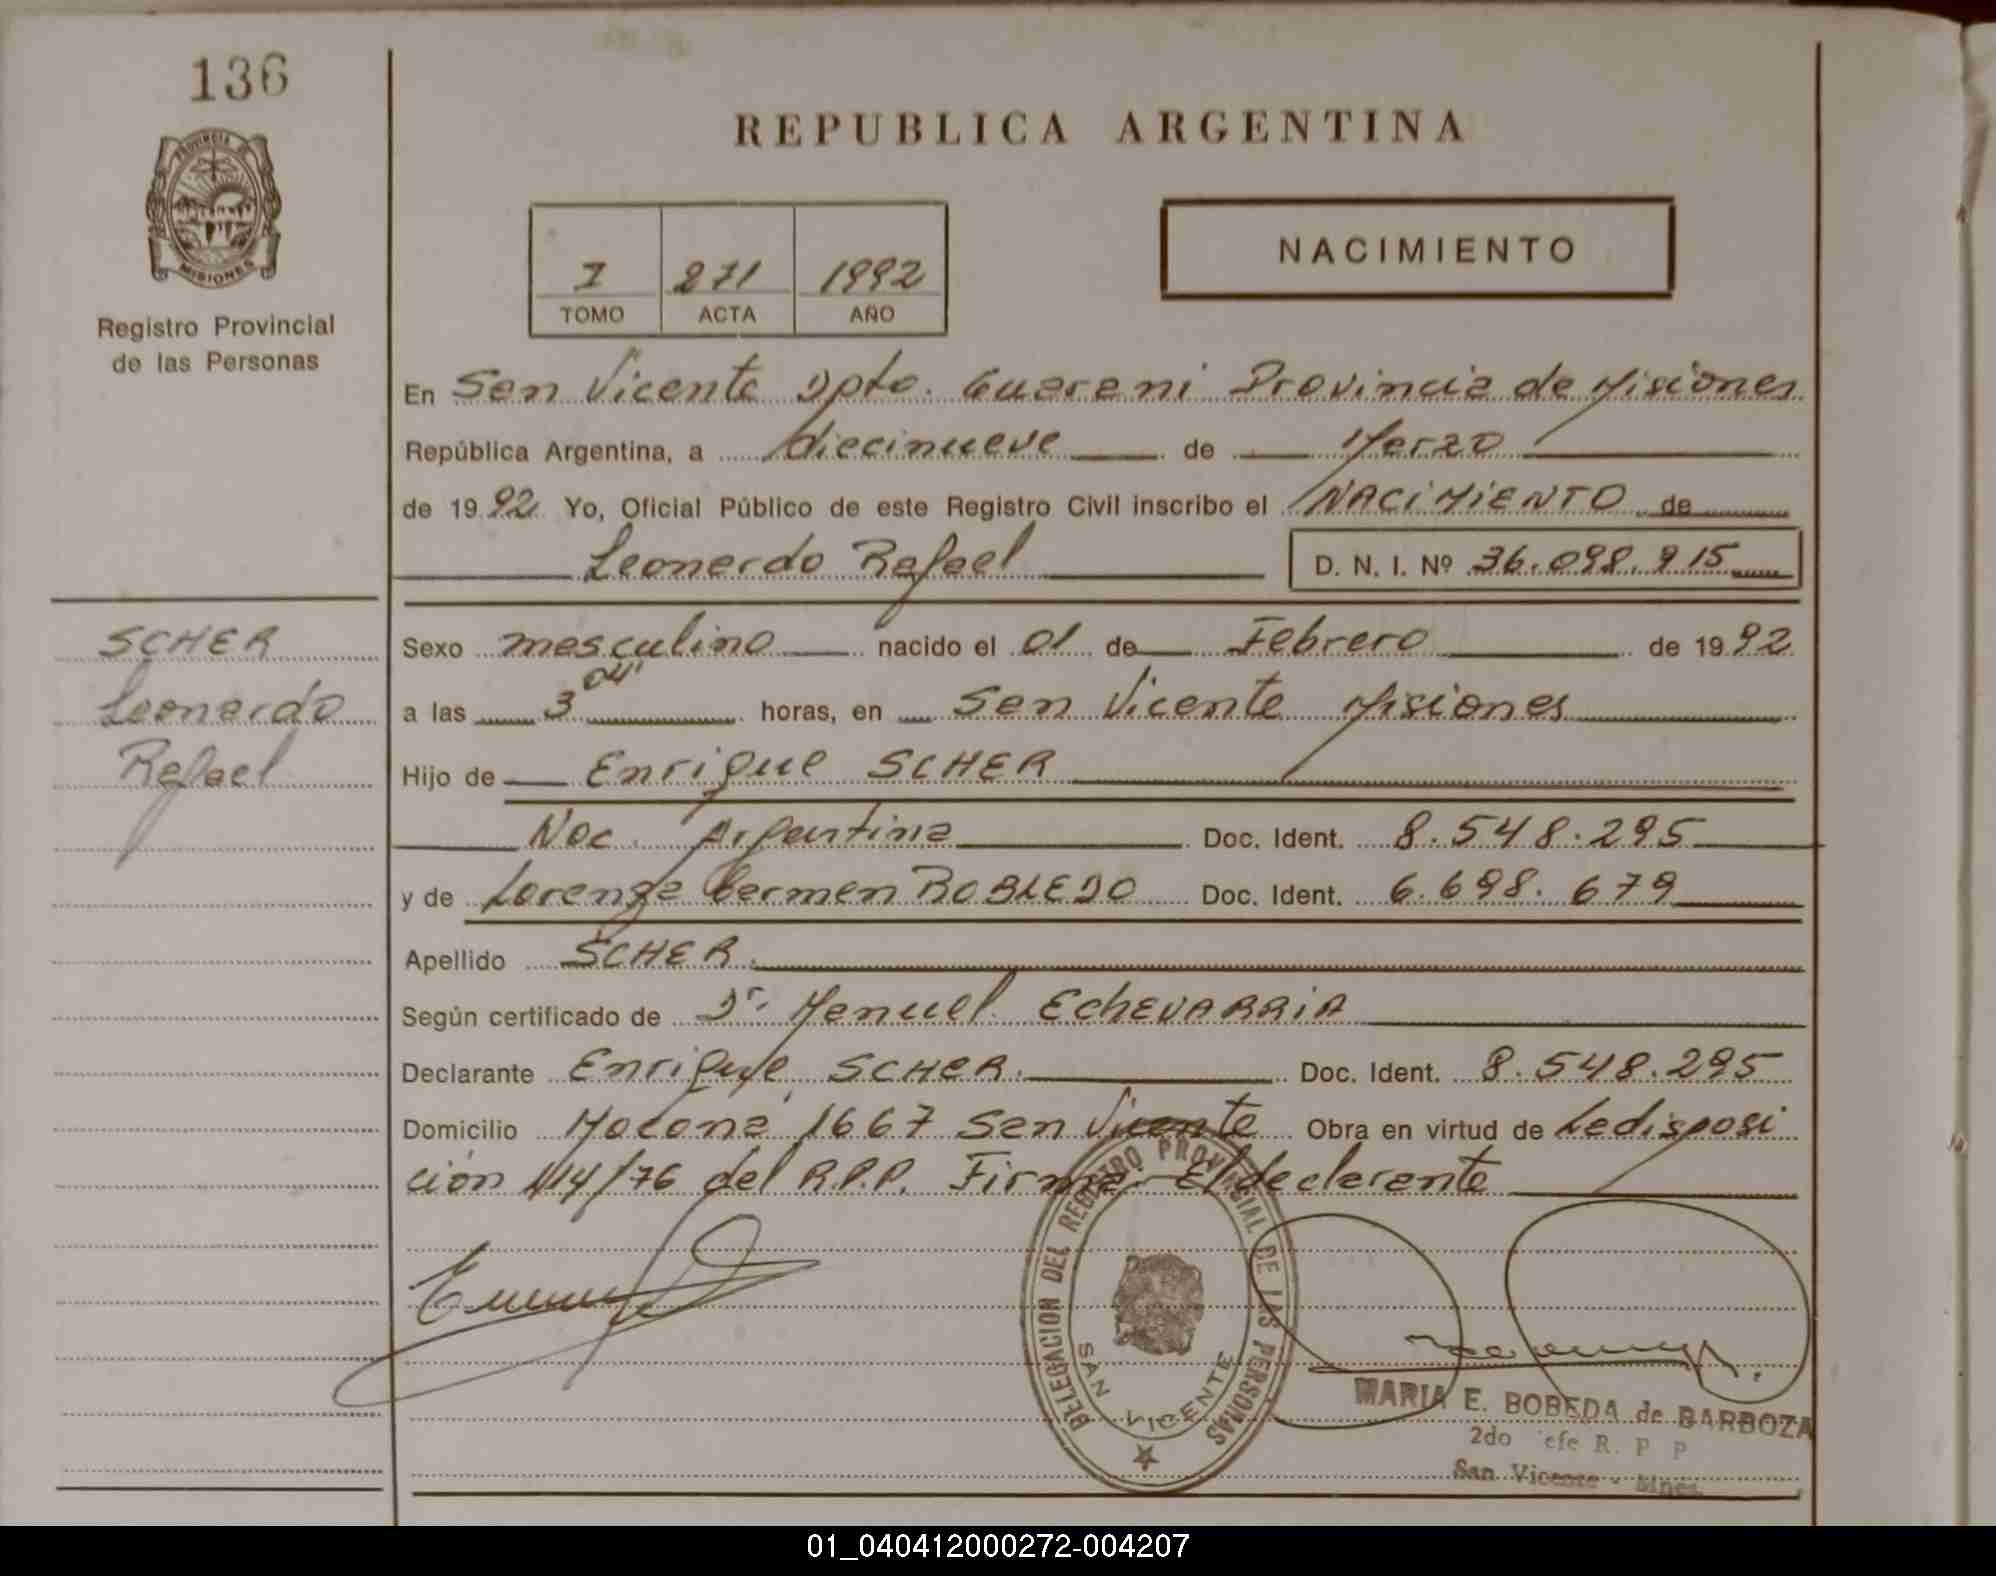 136
REPUBLICA ARGENTINA
PROVINCIA DE
MISIONES
Registro Provincial
de las Personas
I 271 1992
TOMO ACTA AÑO
NACIMIENTO
En San Vicente Dpto. Guarani Provincia de Misiones
República Argentina, a diecinueve de Marzo
de 1992 Yo, Oficial Público de este Registro Civil inscribo el NACIMIENTO de
Leonardo Rafael D. N. I. Nº 36.098.915
SCHER
Leonardo
Rafael
Sexo masculino nacido el 01 de Febrero de 1992
a las 3 04' horas, en San Vicente Misiones
Hijo de Enrique SCHER
Nac. Argentina Doc. Ident. 8.548.295
y de Lorenza Carmen ROBLEDO Doc. Ident. 6.698.679
Apellido SCHER
Según certificado de Dr. Manuel EChEVARRiA
Declarante Enrique SCHER. Doc. Ident. 8.548.295
Domicilio Mocona 1667 San Vicente Obra en virtud de La disposi
ción 114/76 del R.P.P. Firma El declarante
DELEGACION DEL REGISTRO PROVINCIAL DE LAS PERSONAS
SAN VICENTE
MARIA E. BOBEDA de BARBOZA
2do efe R. P P
San Vicente - Mnes.
01_040412000272-004207